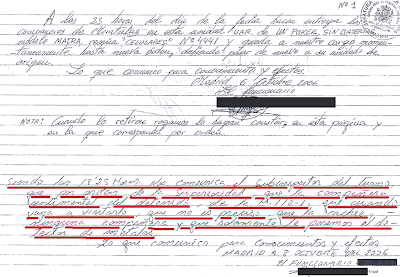 Nº 1
A las 23 horas del día de la fecha hacen entrega los
compañeros de Claritales en esta unidad UAR de UN POKER, SIN BATERIAS,
modelo MATRA, reseña "CELULARES" Nº 4441 y queda a nuestro cargo momen-
táneamente hasta nueva orden, debiendo de nuevo a su unidad de
origen.
Lo que comunico para conocimiento y efectos
Madrid 6 octubre 2006
El funcionario
NOTA: Cuando lo retiren rogamos lo hagan constar, en esta página y
en la que corresponda por orden
Siendo las 18'25 Horas, me comunica el Subinspector del turno,
que por orden de la Superioridad que la compañera
sentimental del detenido de la que cuando
venga a visitarlo, que no es preciso que la cachee
ninguna compañera y que solamente le pasemos el de-
tector de metales.
Lo que comunico para conocimientos y efectos
MADRID A 8 OCTUBRE DEL 2006
EL FUNCIONARIO